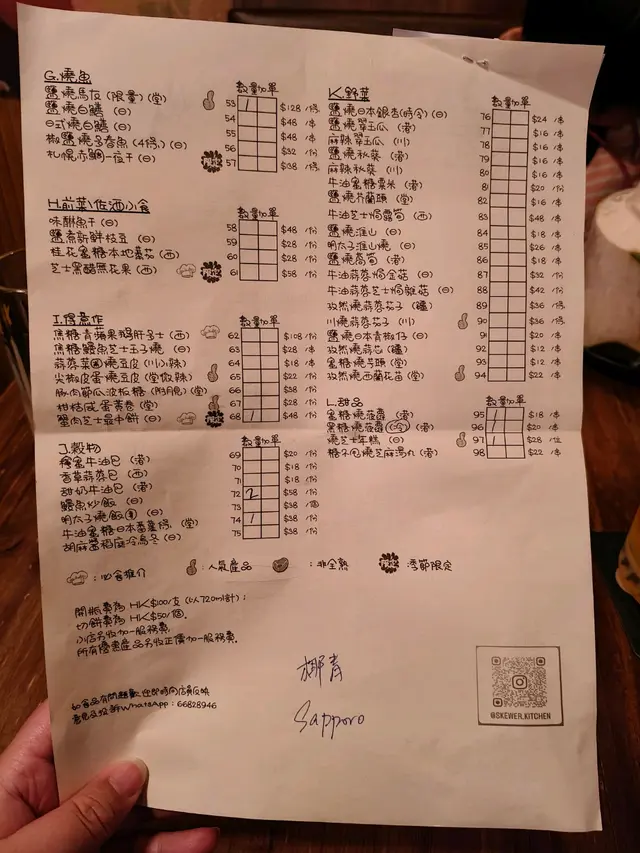 G.燒魚
數量 加單
鹽燒馬友 (限量) (堂) 53 1 $128 /條
鹽燒白鱔 (日) 54 $48 /串
日式燒白鱔 (日) 55 $48 /串
椒鹽燒多春魚 (4條) (日) 56 $32 /份
札幌赤鯛一夜干 (日) 57 $38 /條
H.前菜\佐酒小食
數量 加單
味醂魚干 (日) 58 $48 /份
鹽煮新鮮枝豆 (日) 59 $28 /份
桂花蜜糖本地番茄 (西) 60 $28 /份
芝士黑醋無花果 (西) 61 $58 /份
I.得意作
數量 加單
焦糖青蘋果鵝肝多士 (西) 62 $108 /份
焦糖鰻魚芝士玉子燒 (日) 63 $28 /份
蒜蓉菜圃燒豆皮 (川)(小辣) 64 $18 /串
尖椒皮蛋燒豆皮 (堂)(微辣) 65 $22 /串
豚肉節瓜波板糖 (堂) 66 $38 /份
柑桔咸蛋黃卷 (堂) 67 $28 /份
蟹肉芝士最中餅 (日) 68 1 $48 /份
J.穀物
數量 加單
檸蜜牛油包 (港) 69 $20 /份
香草蒜蓉包 (西) 70 $18 /份
甜奶牛油包 (港) 71 $18 /份
鰻魚炒飯 (日) 72 2 $58 /份
明太子燒飯團 (日) 73 $38 /個
牛油蜜糖日本番薯條 (堂) 74 1 $38 /份
胡麻醬稻庭冷烏冬 (日) 75 $38 /份
K.野菜
數量 加單
鹽燒日本銀杏(時令) (日) 76 $24 /串
鹽燒翠玉瓜 (港) 77 $16 /串
麻辣翠玉瓜 (川) 78 $16 /串
鹽燒秋葵 (港) 79 $16 /串
麻辣秋葵 (川) 80 $16 /串
牛油蜜糖粟米 (港) 81 $20 /份
鹽燒芥蘭頭 (堂) 82 $16 /串
牛油芝士焗露筍 (西) 83 $48 /串
鹽燒淮山 (日) 84 $18 /串
明太子淮山燒 (日) 85 $26 /串
鹽燒萵筍 (港) 86 $18 /串
牛油蒜蓉焗金菇 (日) 87 $32 /份
牛油蒜蓉芝士焗鮮菇 (日) 88 $42 /份
孜然燒蒜蓉茄子 (疆) 89 $36 /條
川燒蒜蓉茄子 (川) 90 $36 /條
鹽燒日本青椒仔 (日) 91 $20 /串
孜然燒蒜芯 (疆) 92 $12 /串
蜜糖燒芋頭 (堂) 93 $12 /串
孜然燒西蘭花苗 (堂) 94 $22 /串
L.甜品
數量 加單
蜜糖燒菠蘿 (港) 95 1 $18 /串
黑糖燒菠蘿 (冷) (港) 96 1 $20 /串
燒芝士年糕 (日) 97 1 $28 /位
糖不甩燒芝麻湯丸 (港) 98 $22 /串
:必食推介
:人氣產品
:非全熟
限定 季節限定
開瓶費為 HK$100/支 (以720ml計);
切餅費為 HK$50/個.
小店另收加一服務費.
所有優惠產品另收正價加一服務費.
椰青
Sapporo
如食品有問題歡迎即時向店員反映
意見及投訴WhatsApp:66828946
@SKEWER.KITCHEN